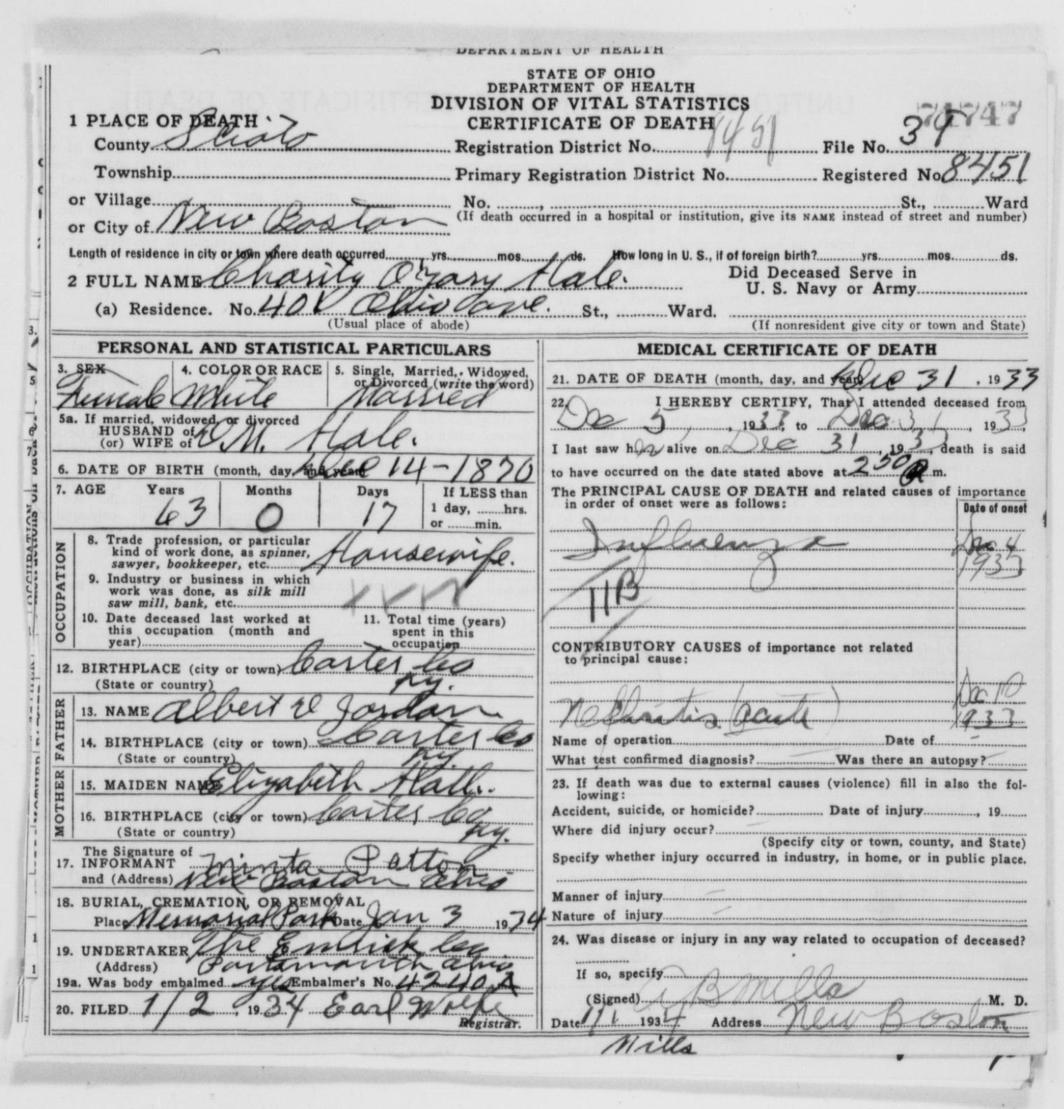 DEPARTMENT OF HEALTH
STATE OF OHIO
DEPARTMENT OF HEALTH
DIVISION OF VITAL STATISTICS
CERTIFICATE OF DEATH
74747
1 PLACE OF DEATH
County Scioto
Registration District No. 1451 File No. 39
Township
Primary Registration District No. Registered No. 8451
or Village
No. , St., Ward
or City of New Boston
(If death occurred in a hospital or institution, give its NAME instead of street and number)
Length of residence in city or town where death occurred yrs. mos. ds. How long in U. S., if of foreign birth? yrs. mos. ds.
2 FULL NAME Charity Hale.
Did Deceased Serve in
U. S. Navy or Army
(a) Residence. No. 401 Ohio ave. St., Ward.
(Usual place of abode)
(If nonresident give city or town and State)
PERSONAL AND STATISTICAL PARTICULARS
3. SEX 4. COLOR OR RACE 5. Single, Married, Widowed,
or Divorced (write the word)
Female White Married
5a. If married, widowed, or divorced
HUSBAND of
(or) WIFE of M. Hale.
6. DATE OF BIRTH (month, day, and year) Dec 14-1870
7. AGE Years Months Days If LESS than
1 day, hrs.
or min.
63 0 17
OCCUPATION
8. Trade profession, or particular
kind of work done, as spinner,
sawyer, bookkeeper, etc. Housewife.
9. Industry or business in which
work was done, as silk mill
saw mill, bank, etc.
10. Date deceased last worked at
this occupation (month and
year)
11. Total time (years)
spent in this
occupation
12. BIRTHPLACE (city or town) Carter Co
(State or country) Ky.
FATHER
13. NAME Albert Jordan
14. BIRTHPLACE (city or town) Carter Co
(State or country) Ky.
MOTHER
15. MAIDEN NAME Elizabeth Hall.
16. BIRTHPLACE (city or town) Carter Co
(State or country) Ky.
17. The Signature of
INFORMANT Minta Patton
and (Address) New Boston Ohio
18. BURIAL, CREMATION, OR REMOVAL
Place Memorial Park Date Jan 3 1934
19. UNDERTAKER The Emrick Co
(Address) Portsmouth Ohio
19a. Was body embalmed yes Embalmer's No. 4240A
20. FILED 1/2, 1934 Earl Wolfe
Registrar.
MEDICAL CERTIFICATE OF DEATH
21. DATE OF DEATH (month, day, and year) Dec 31, 1933
22. I HEREBY CERTIFY, That I attended deceased from
Dec 5, 1933, to Dec 31, 1933
I last saw her alive on Dec 31, 1933, death is said
to have occurred on the date stated above at 250 P m.
The PRINCIPAL CAUSE OF DEATH and related causes of importance
in order of onset were as follows:
Date of onset
Influenza Dec 4
1933
11B
CONTRIBUTORY CAUSES of importance not related
to principal cause:
Dec 10
Nephritis (acute) 1933
Name of operation Date of
What test confirmed diagnosis? Was there an autopsy?
23. If death was due to external causes (violence) fill in also the fol-
lowing:
Accident, suicide, or homicide? Date of injury, 19
Where did injury occur?
(Specify city or town, county, and State)
Specify whether injury occurred in industry, in home, or in public place.
Manner of injury
Nature of injury
24. Was disease or injury in any way related to occupation of deceased?
If so, specify
(Signed) B Mills M. D.
Date 1/1 1934 Address New Boston
Mills